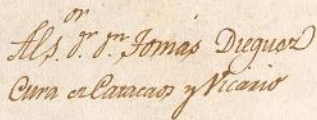 Al S.ᵒʳ D.ʳ D.ⁿ Tomás Dieguez
Cura en Caracaos y Vicario